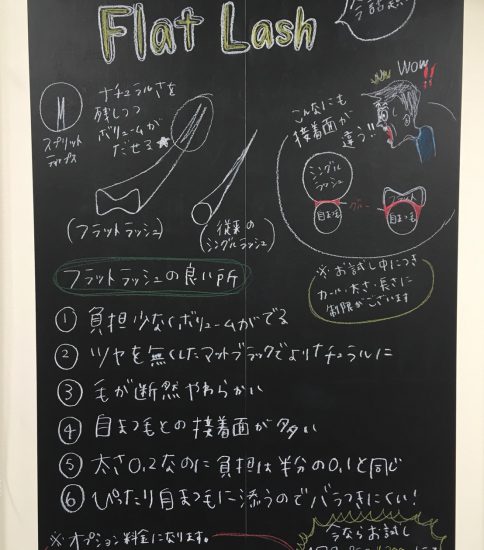 Flat Lash
今話題
ナチュラルさを
残しつつ
ボリュームが
だせる★
スプリット
ラップス
(フラットラッシュ)
(従来の
シングルラッシュ)
Wow!!
こんなにも
接着面が
違う!!
シングル
ラッシュ
自まつ毛
グルー
フラット
自まつ毛
※お試し中につき
カール・太さ・長さに
制限がございます
フラットラッシュの良い所
① 負担少なくボリュームがでる
② ツヤを無くしたマットブラックでよりナチュラルに
③ 毛が断然やわらかい
④ 自まつ毛との接着面が多い
⑤ 太さ0.2なのに負担は半分の0.1と同じ
⑥ ぴったり自まつ毛に添うのでバラつきにくい!
※オプション料金になります。
今ならお試し